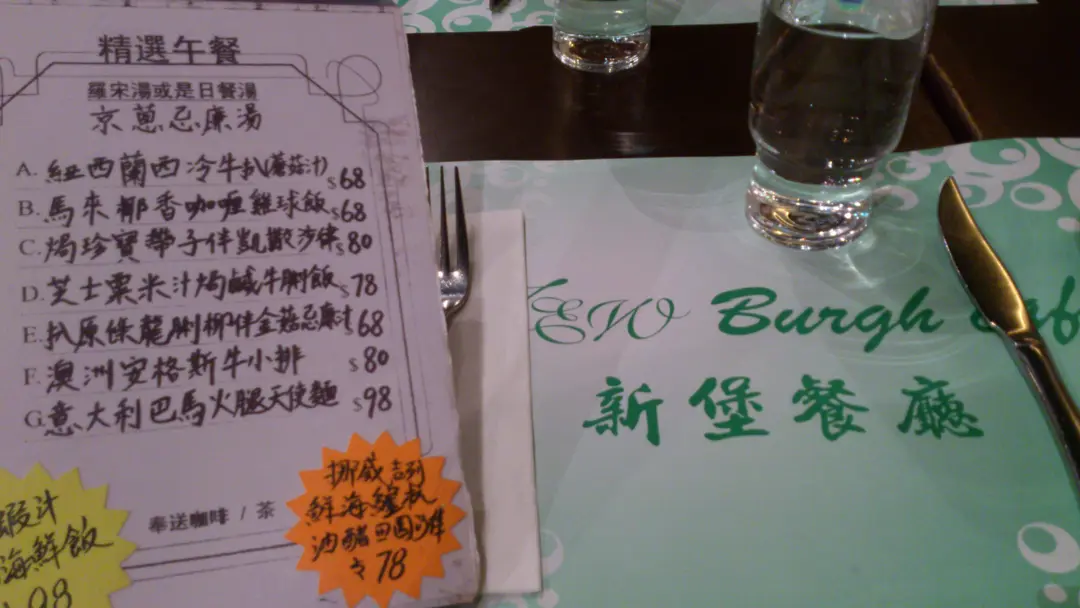 精選午餐
羅宋湯或是日餐湯
京蔥忌廉湯
A. 紐西蘭西冷牛扒(蘑菇汁) $68
B. 馬來椰香咖喱雞球飯 $68
C. 焗珍寶帶子伴凱撒沙律 $80
D. 芝士粟米汁焗鹹牛脷飯 $78
E. 扒原條龍脷柳伴金菇忌廉汁 68
F. 澳洲安格斯牛小排 $80
G. 意大利巴馬火腿天使麵 $98
奉送咖啡 / 茶
蝦汁
海鮮飯
98
挪威
鮮海
油
78
EW Burgh
新堡餐廳